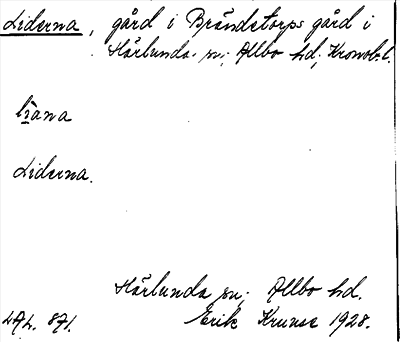 Liderna, gård i Brändetorps gård i
Härlunda sn; Allbo hd; Kronob.l.
liana
Liderna.
Härlunda sn; Allbo hd.
LAL. 871. Erik Kruuse 1928.